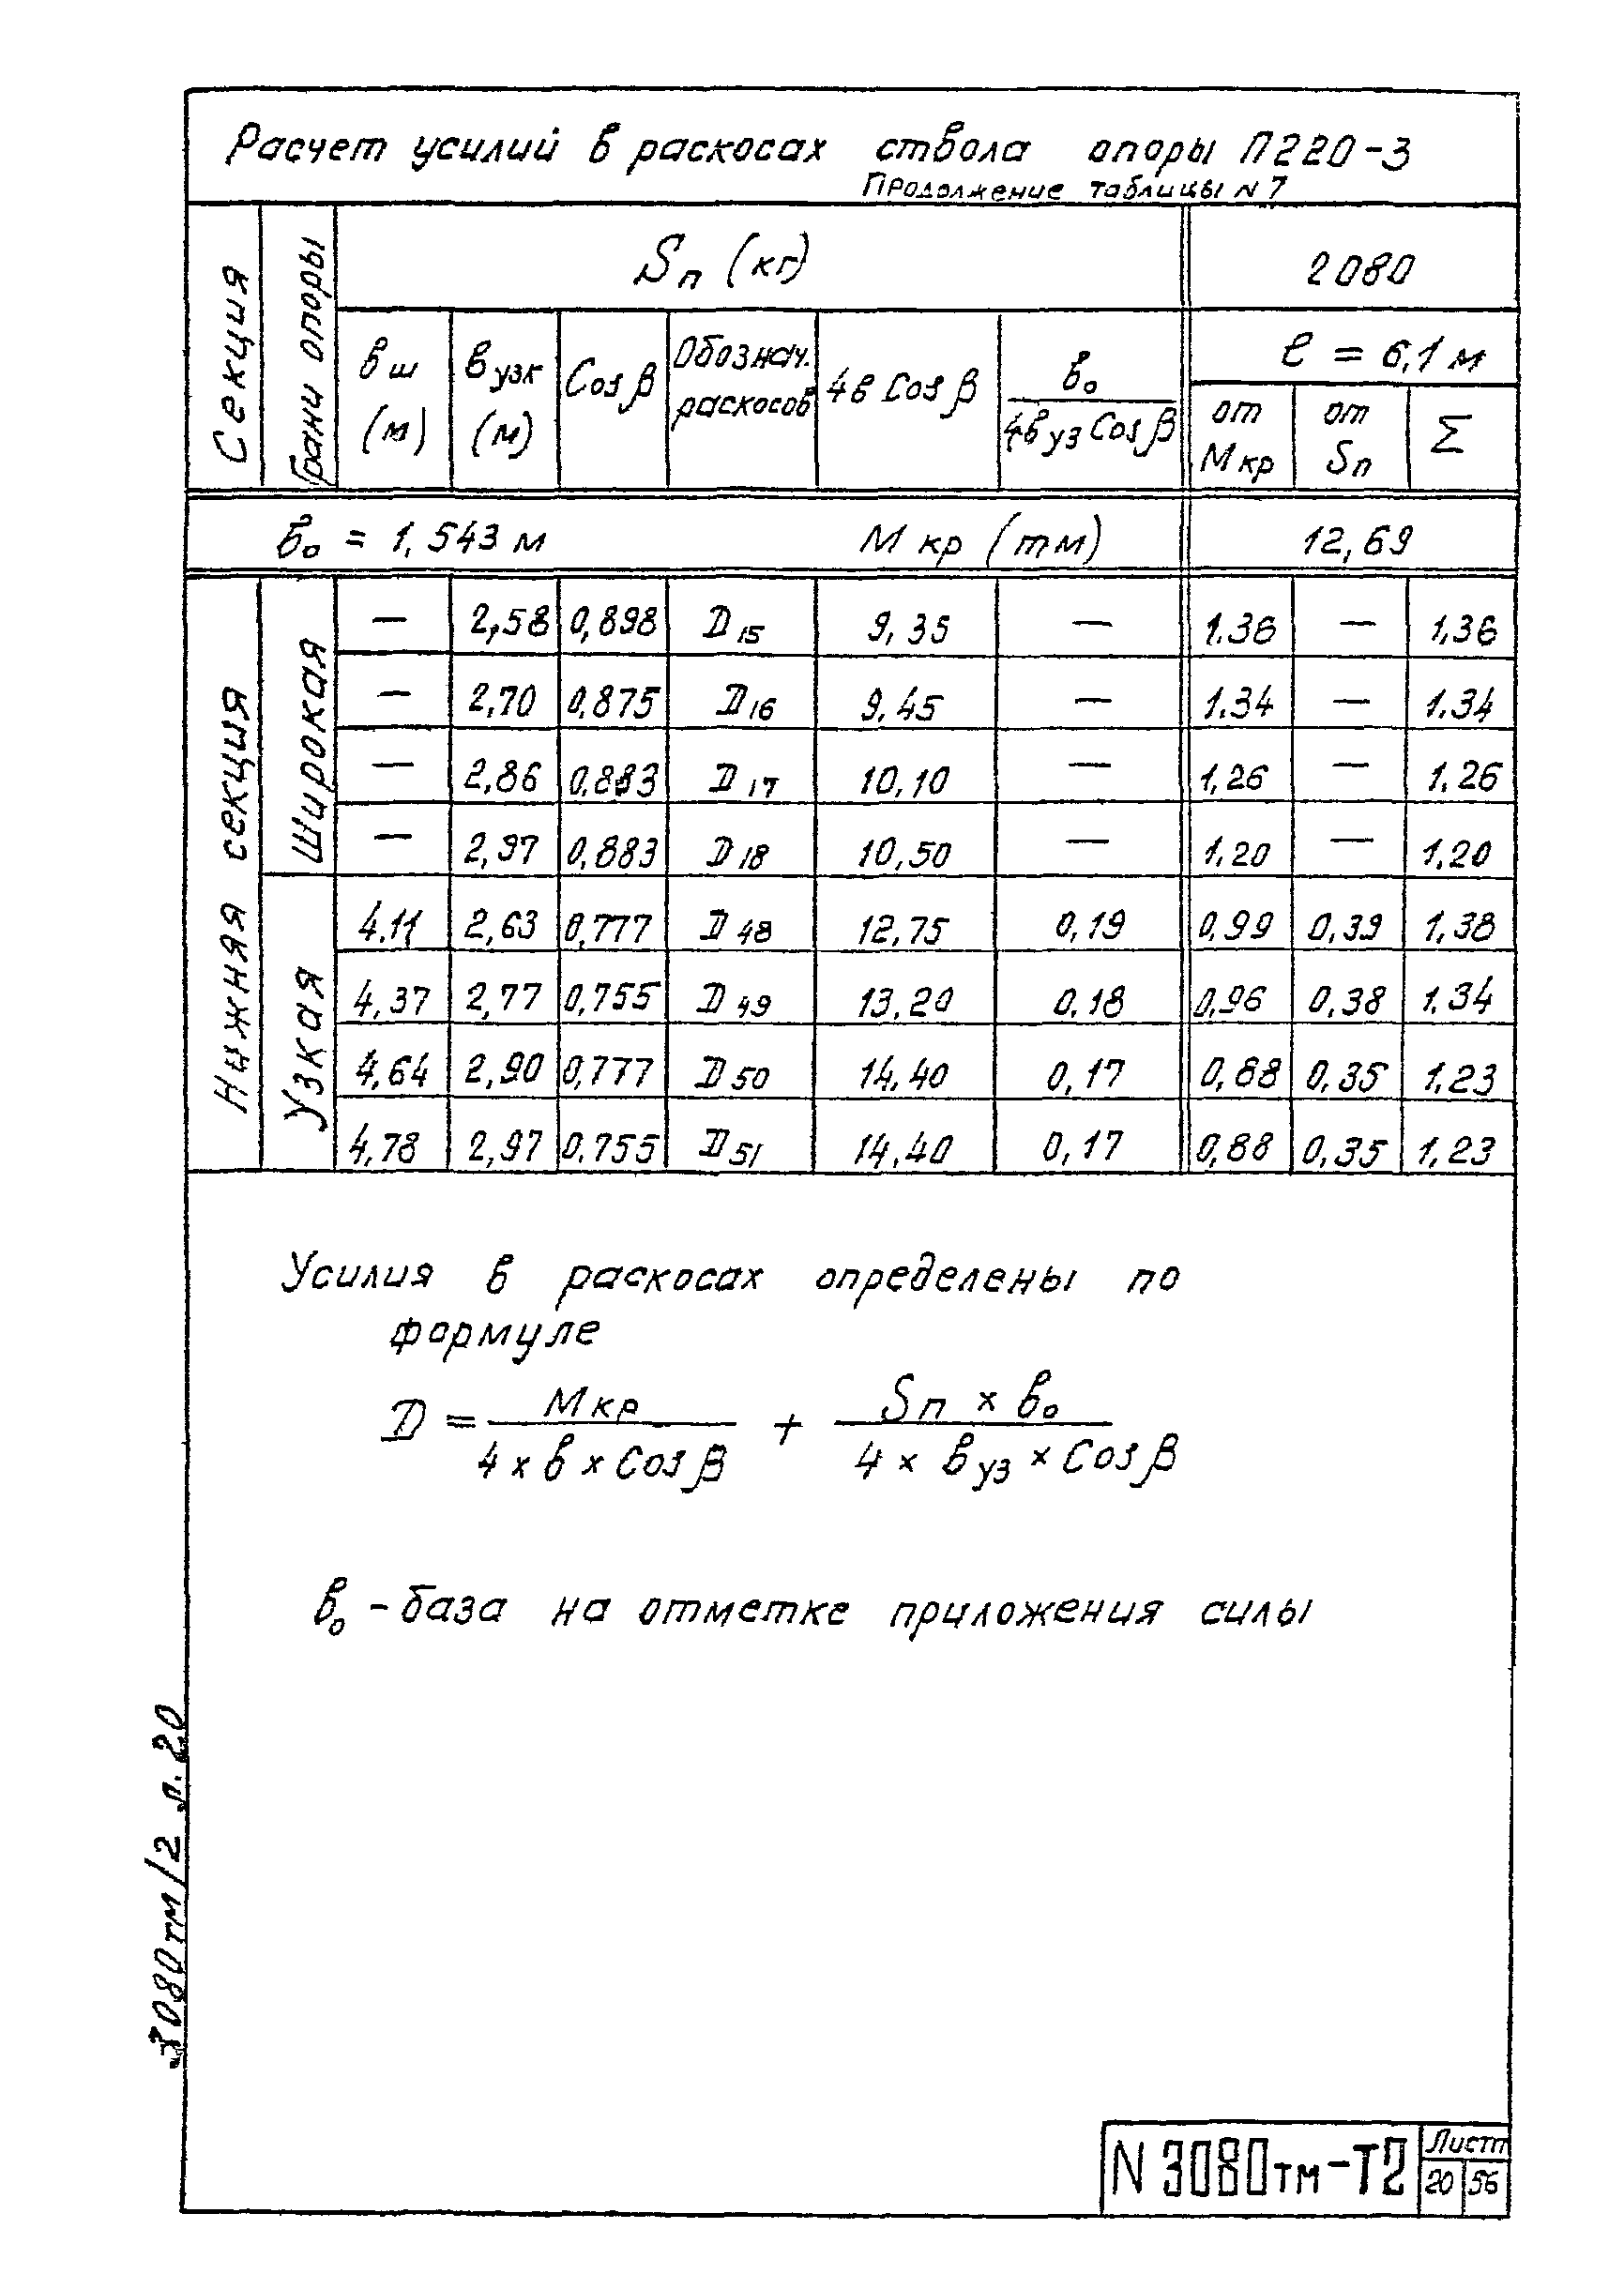 Расчет усилий в раскосах ствола опоры П220-3
Продолжение таблицы N 7
Секция
Грани опоры
Sп (кг)
2080
вш (м)
вузк (м)
Cos β
Обознач. раскосов
4в Cos β
в₀ / 4вуз Cos β
ℓ = 6,1 м
от Мкр
от Sп
Σ
в₀ = 1,543 м Мкр (тм) 12,69
Нижняя секция
Широкая
— 2,58 0,898 D15 9,35 — 1.36 — 1,36
— 2,70 0,875 D16 9,45 — 1.34 — 1.34
— 2,86 0,883 D17 10,10 — 1,26 — 1,26
— 2,97 0,883 D18 10,50 — 1,20 — 1,20
Узкая
4.11 2,63 0,777 D48 12,75 0,19 0,99 0,39 1,38
4,37 2,77 0,755 D49 13,20 0,18 0,96 0,38 1.34
4,64 2,90 0,777 D50 14,40 0,17 0,88 0,35 1,23
4,78 2,97 0,755 D51 14,40 0,17 0,88 0,35 1,23
Усилия в раскосах определены по
формуле
D = Мкр / 4 × в × Cos β + Sп × в₀ / 4 × вуз × Cos β
в₀ - база на отметке приложения силы
3080тм/2 л. 20
N 3080тм-Т2
Лист
20 56